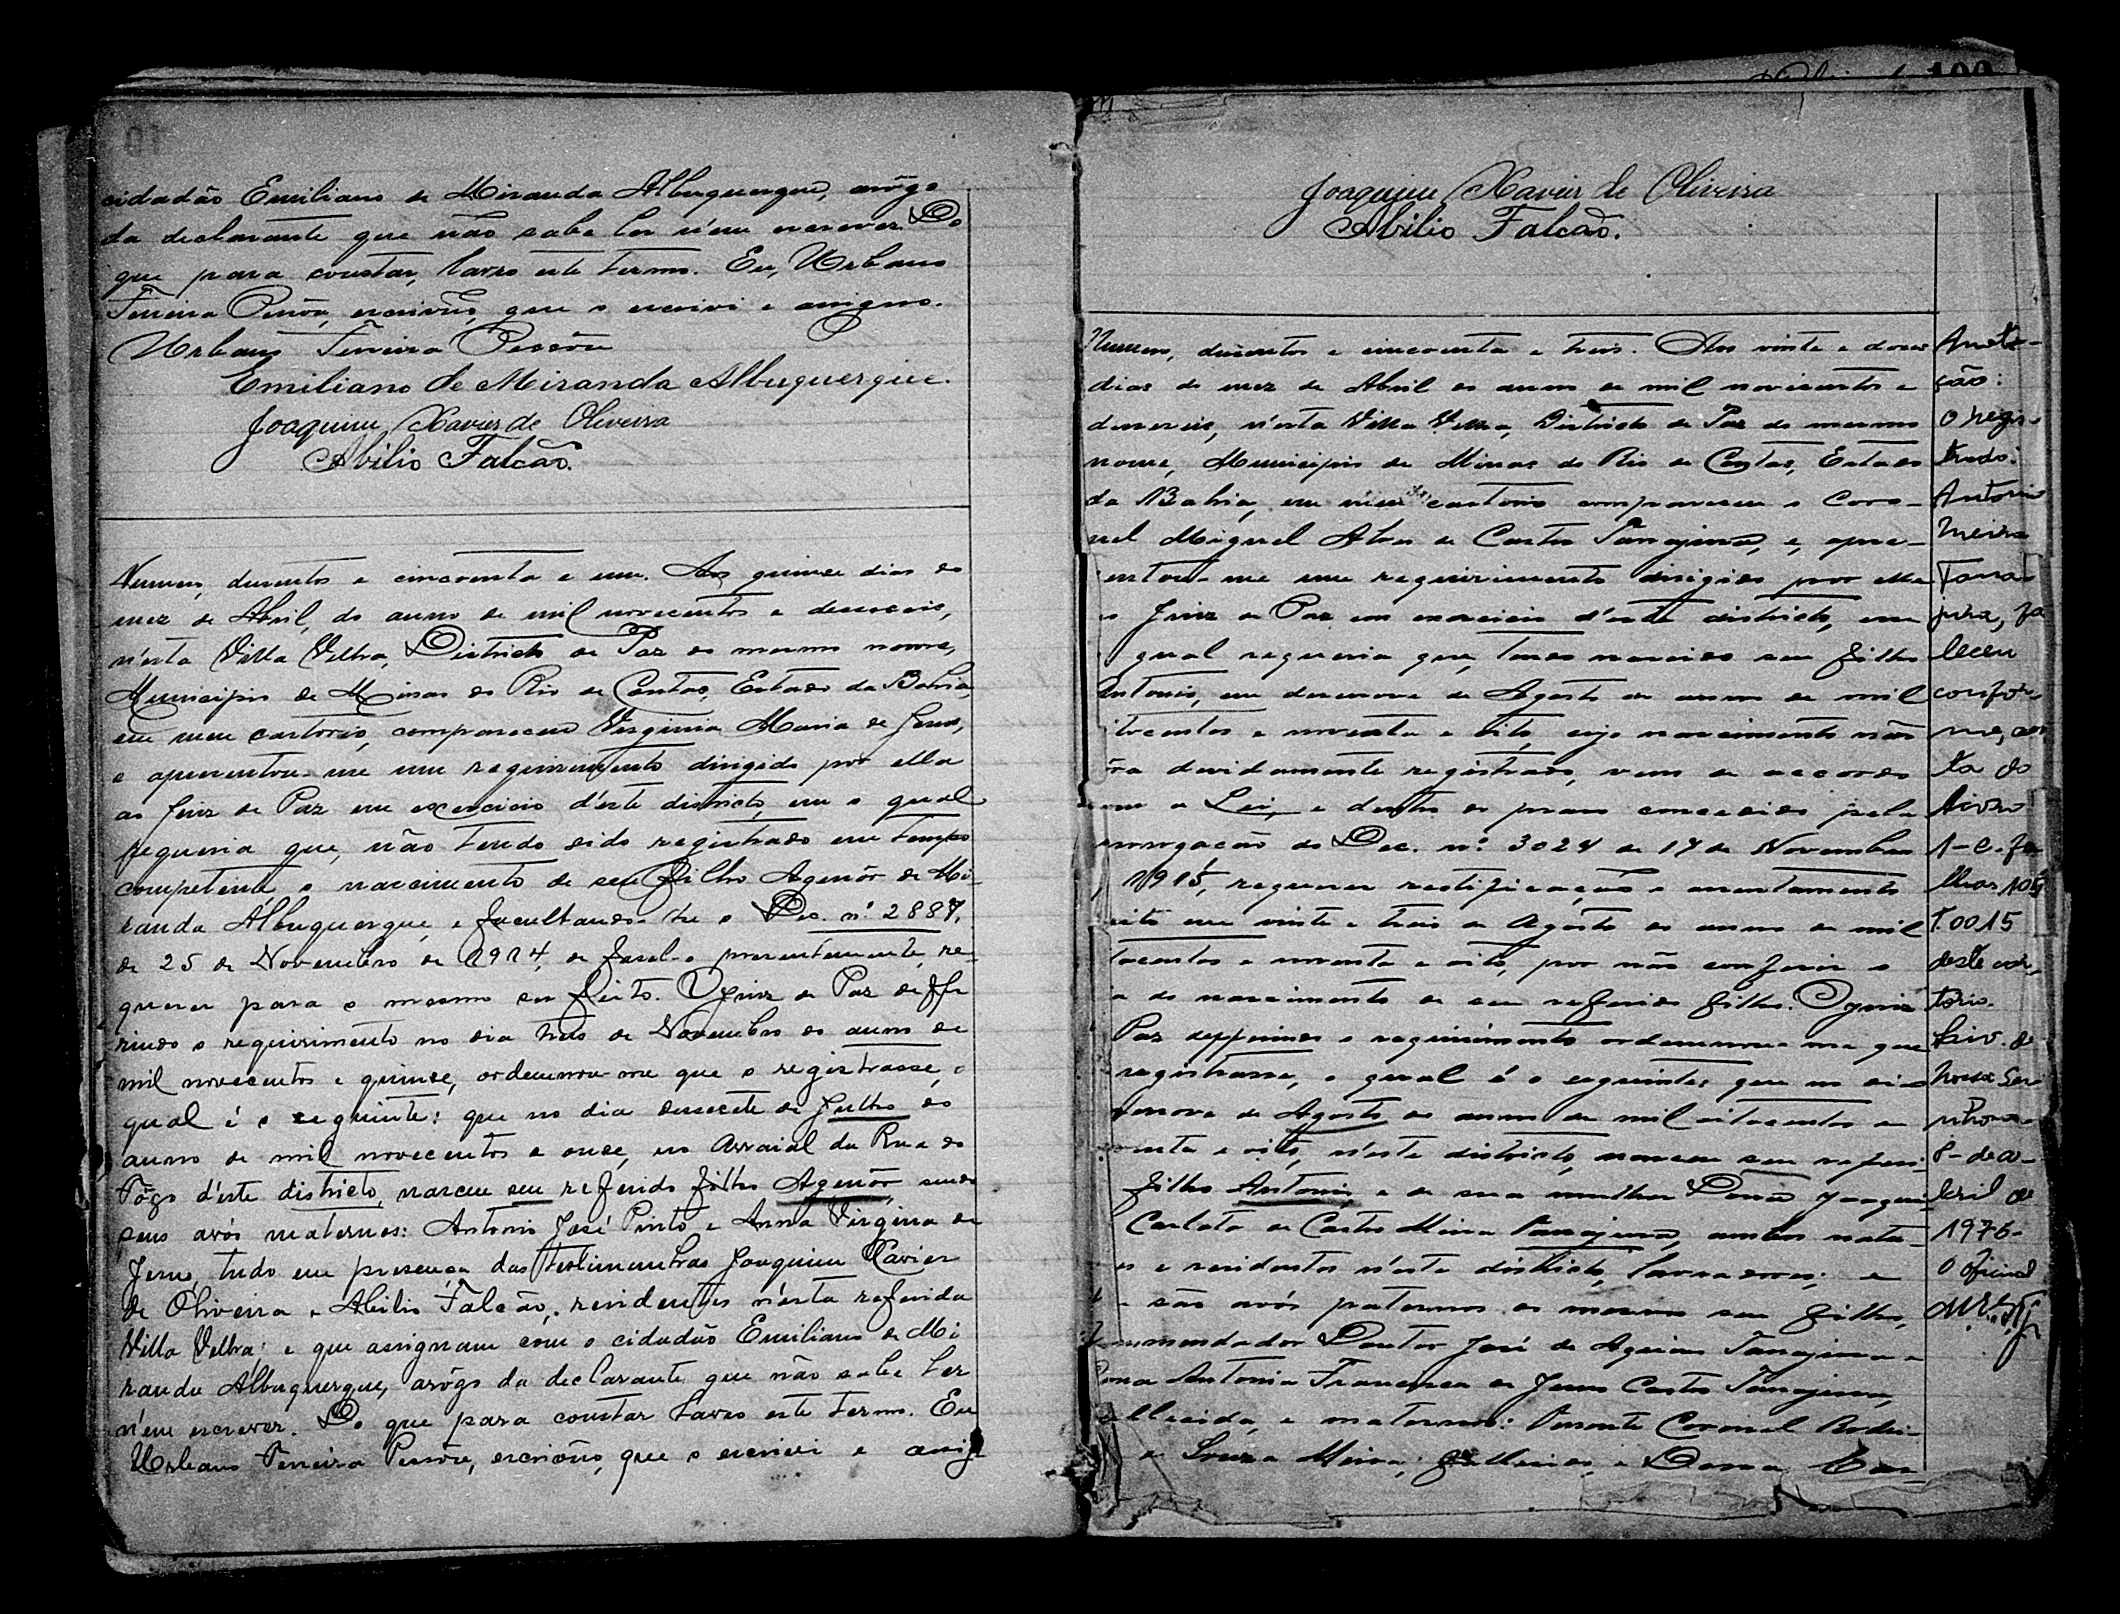 cidadão Emiliano de Miranda Albuquerque, arôgo
da declarante que não sabe ler n'em escrever. Do
que para constar, lavro este termo. Eu, Urbano
Ferreira Pessôa, escrivão, que o escrevi e assigno.
Urbano Ferreira Pessôa
Emiliano de Miranda Albuquerque.
Joaquim Xavier de Oliveira
Abilio Falcão.
Numero, dusentos e cincoenta e um. Aos quinse dias do
mez de Abril, do anno de mil novecentos e deseseis,
n'esta Villa Velha, Districto de Paz do mesmo nome,
Municipio de Minas do Rio de Contas, Estado da Bahia,
em meu cartorio, compareceu Virginia Maria de Jesus,
e apresentou-me um requerimento dirigido por ella
ao Juiz de Paz em excercicio d'este districto, em o qual
requeria que, não tendo sido registrado em tempo
competente o nascimento de seu filho Agenôr de Mi-
randa Albuquerque, e facultando-lhe o Dec. nº 2887,
de 25 de Novembro de 1914, de fasel-o presentemente, re-
querer para o mesmo ser feito. O Juiz de Paz deffe
rindo o requirimento no dia tres de Novembro do anno de
mil novecentos e quinse, ordennou-me que o registrasse, o
qual é o seguinte: que no dia desesete de Julho do
anno de mil novecentos e onse, no Arraial da Rua do
Fôgo d'este districto, nasceu seu referido filho Agenôr, sendo
seus avós maternos: Antonio José Pinto e Anna Virginia de
Jesus, tudo em presença das testimunhas Joaquim Xavier
de Oliveira e Abilio Falcão, residentes n'esta referida
Villa Velha: e que assignam com o cidadão Emiliano de Mi
randa Albuquerque, arôgo da declarante que não sabe ler
n'em escrever. Do que para constar lavro este termo. Eu
Urbano Ferreira Pessôa, escrivão, que o escrevi e assig
Joaquim Xavier de Oliveira
Abilio Falcão.
Numero, dusentos e cincoenta e tres. Aos vinte e dous
dias do mez de Abril do anno de mil novecentos e
deseseis, n'esta Villa Velha, Districto de Paz do mesmo
nome, Municipio de Minas do Rio de Contas, Estado
da Bahia, em meu cartorio compareceu o Coro-
nel Miguel Alves de Castro Tanajura, e, apre-
entou-me um requirimento dirigido por elle
o Juiz de Paz em exercicio d'este districto, em
qual requeria que, tendo nascido seu filho
Antonio, em desenove de Agosto do anno de mil
itocentos e noventa e oito, cujo nascimento não
ôra devidamente registrado, vem de accordo
om a Lei, e dentro do praso concedido pela
rorogação do Dec. nº 3024 de 17 de Novembro
1915, requerer restificação e assentamento
eito em vinte e tres de Agosto do anno de mil
tocentos e noventa e oito, por não conferir o
a do nascimento de seu referido filho. O Juiz
Paz defferindo o requirimento ordennou-me que
registrasse, o qual é o seguinte: que no dia
senove de Agosto do anno de mil oitocentos e
venta e oito, n'este districto, nasceu seu referi-
filho Antonio, e de sua mulher Dona Joaqui-
Carlota de Castro Meira Tanajura, ambos natu-
es e residentes n'este districto, lavradores; e
são avós paternos do mesmo seu filho,
ommendador Doutor José de Aquino Tanajura e
ona Antonia Francisca de Jesus Castro Tanajura,
allecida, e maternos: Tenente Coronel Rodri-
e Souza Meira, fallecido, e Dona Car-
Anota-
ção:
O regis-
trado:
Antonio
Meira
Tana
jura, fa
leceu
confor-
me, cons
ta do
livro
1-C. fo
lhas 105
T. 0015
deste car-
torio.
Liv. de
nossa Sen
nhora-
8-de a-
bril de
1976-
O oficial